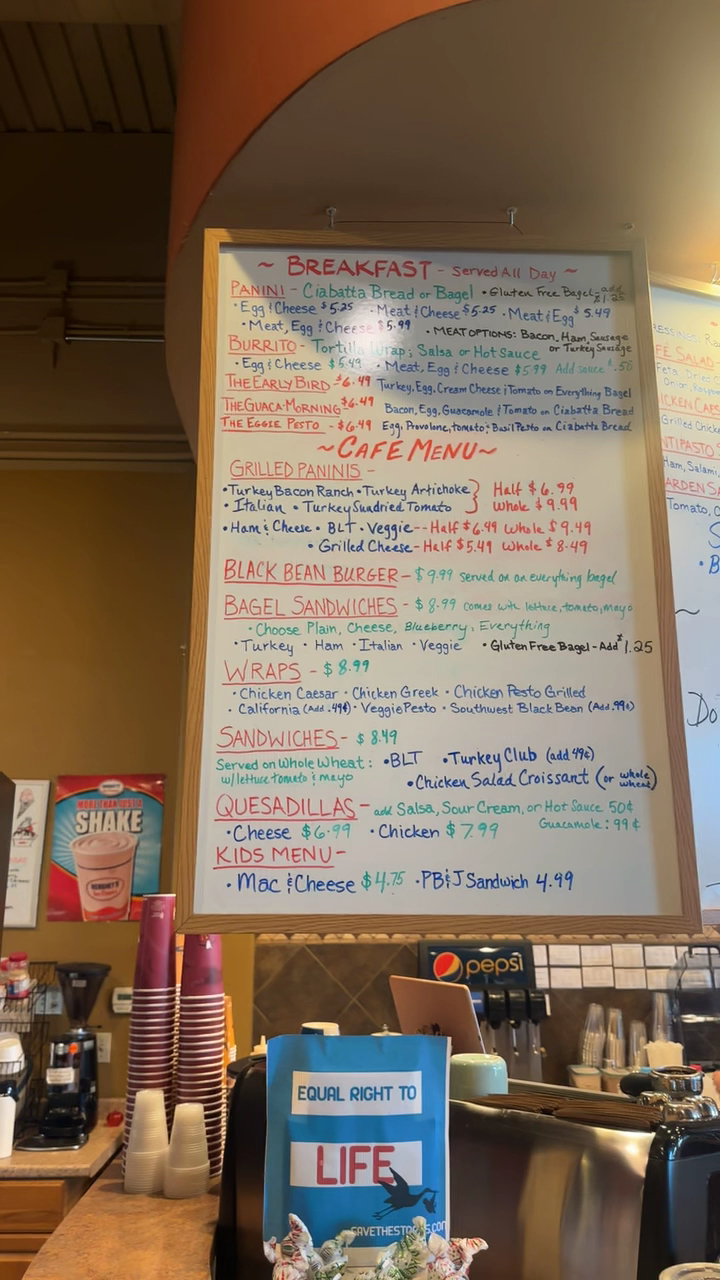 ~ BREAKFAST - Served All Day ~
PANINI - Ciabatta Bread or Bagel • Gluten Free Bagel - add $1.25
• Egg & Cheese $5.25 • Meat & Cheese $5.25 • Meat & Egg $5.49
• Meat, Egg & Cheese $5.99 • MEAT OPTIONS: Bacon, Ham, Sausage
or Turkey Sausage
BURRITO - Tortilla Wrap; Salsa or Hot Sauce
• Egg & Cheese $5.49 • Meat, Egg & Cheese $5.99 Add sauce $.50
THE EARLY BIRD - $6.49 Turkey, Egg, Cream Cheese & Tomato on Everything Bagel
THE GUACA-MORNING $6.49 Bacon, Egg, Guacamole & Tomato on Ciabatta Bread
THE EGGIE PESTO - $6.49 Egg, Provolone, tomato & Basil Pesto on Ciabatta Bread
~ CAFE MENU ~
GRILLED PANINIS -
• Turkey Bacon Ranch • Turkey Artichoke } Half $6.99
• Italian • Turkey Sundried Tomato Whole $9.99
• Ham & Cheese • BLT • Veggie -- Half $6.49 Whole $9.49
• Grilled Cheese - Half $5.49 Whole $8.49
BLACK BEAN BURGER - $9.99 served on an everything bagel
BAGEL SANDWICHES - $8.99 comes with lettuce, tomato, mayo
• Choose Plain, Cheese, Blueberry, Everything
• Turkey • Ham • Italian • Veggie • Gluten Free Bagel - Add $1.25
WRAPS - $8.99
• Chicken Caesar • Chicken Greek • Chicken Pesto Grilled
• California (Add .49¢) • Veggie Pesto • Southwest Black Bean (Add .99¢)
SANDWICHES - $8.49
Served on Whole Wheat: • BLT • Turkey Club (add 49¢)
w/ lettuce tomato & mayo • Chicken Salad Croissant (or whole wheat)
QUESADILLAS - add Salsa, Sour Cream, or Hot Sauce 50¢
• Cheese $6.99 • Chicken $7.99 Guacamole: 99¢
KIDS MENU -
• Mac & Cheese $4.75 • PB&J Sandwich 4.99
FÉ SALAD
Feta, Dried
Onion
ICKEN CAES
Grilled Chicke
NTIPASTO S
Ham, Salami,
ARDEN SA
Tomato, C
S
• B
Do
MORE THAN JUST A
SHAKE
HERSHEY'S
pepsi
EQUAL RIGHT TO
LIFE
SAVETHESTORKS.com